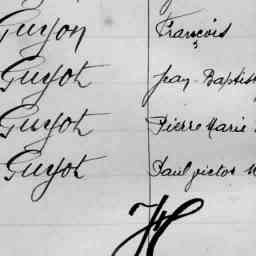 Guyon François
Guyot Jean-Baptis
Guyot Pierre Marie
Guyot Paul victor